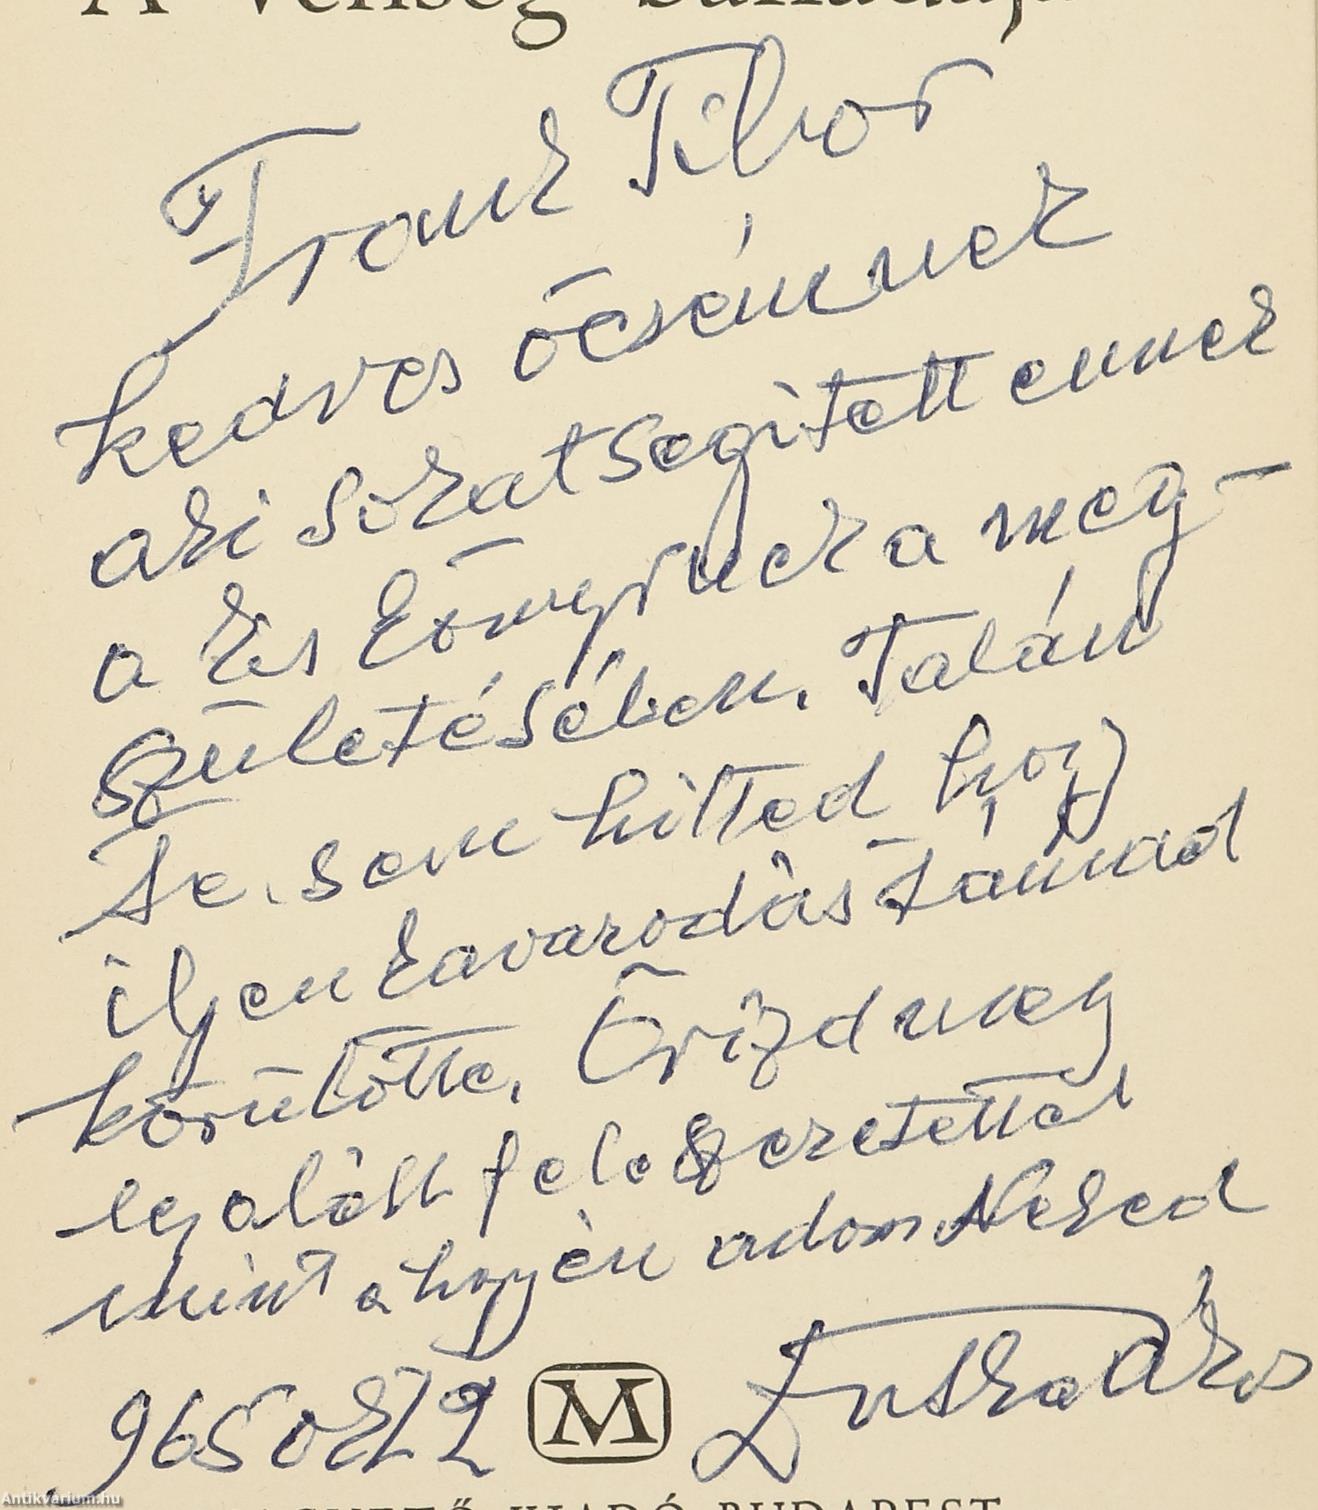 A vénség bandádája
Frank Tibor
kedves öcsémnek
aki sokat segitett ennek
a kis könyvnek a meg-
születésében. Talán
te sem hitted hogy
ilyen kavarodás támad
körülötte. Őrizd meg
legalább fele szeretettel
mint ahogy én adom Neked
965 okt 2
Dutka Ákos
M
MAGVETŐ KIADÓ BUDAPEST
Antikvarium.hu